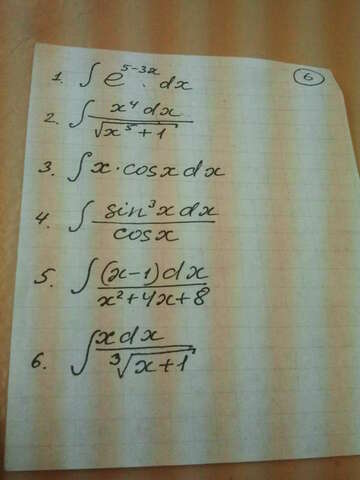 6
1. ∫ e^(5-3x) · dx
2. ∫ x⁴ dx / √(x⁵ + 1)
3. ∫ x · cos x dx
4. ∫ sin³x dx / cos x
5. ∫ (x-1) dx / x² + 4x + 8
6. ∫ x dx / ³√(x + 1)